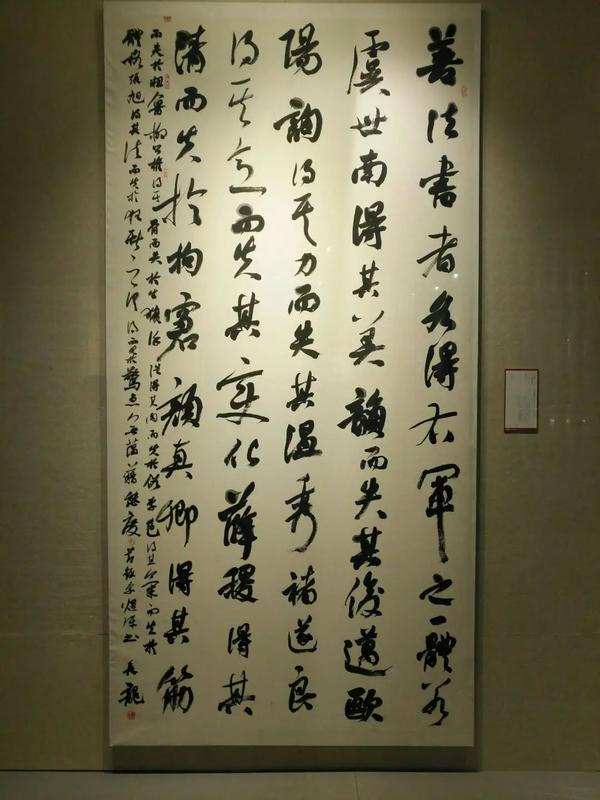 善法書者各得右軍之一體若
虞世南得其美韻而失其俊邁歐
陽詢得其力而失其温秀褚遂良
得其意而失其變化薛稷得其
清而失於拘窘顏真卿得其筋
而失於粗魯柳公權得其骨而失於生獷徐浩得其肉而失於俗李邕得其氣而失於
體格張旭得其法而失於狂獻之俱得而失驚急無蘊藉態度 書 龍